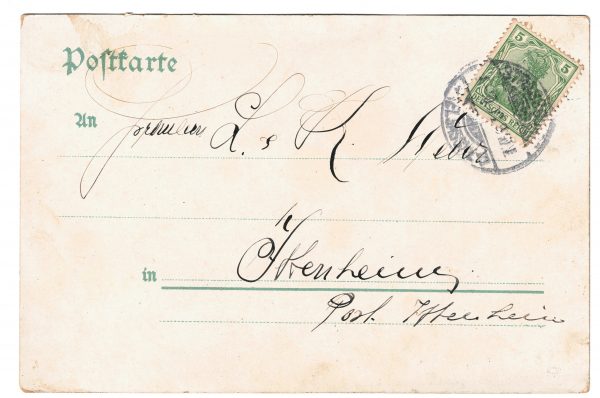 Postkarte
5 5
An Fräulein L. & K. Weiv
in Ittenheim
Post Ittenheim